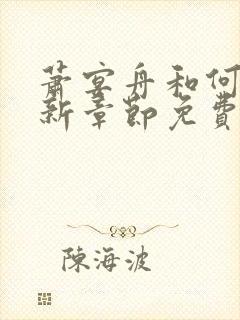 萧宴舟和何
新章节免费
陈海波